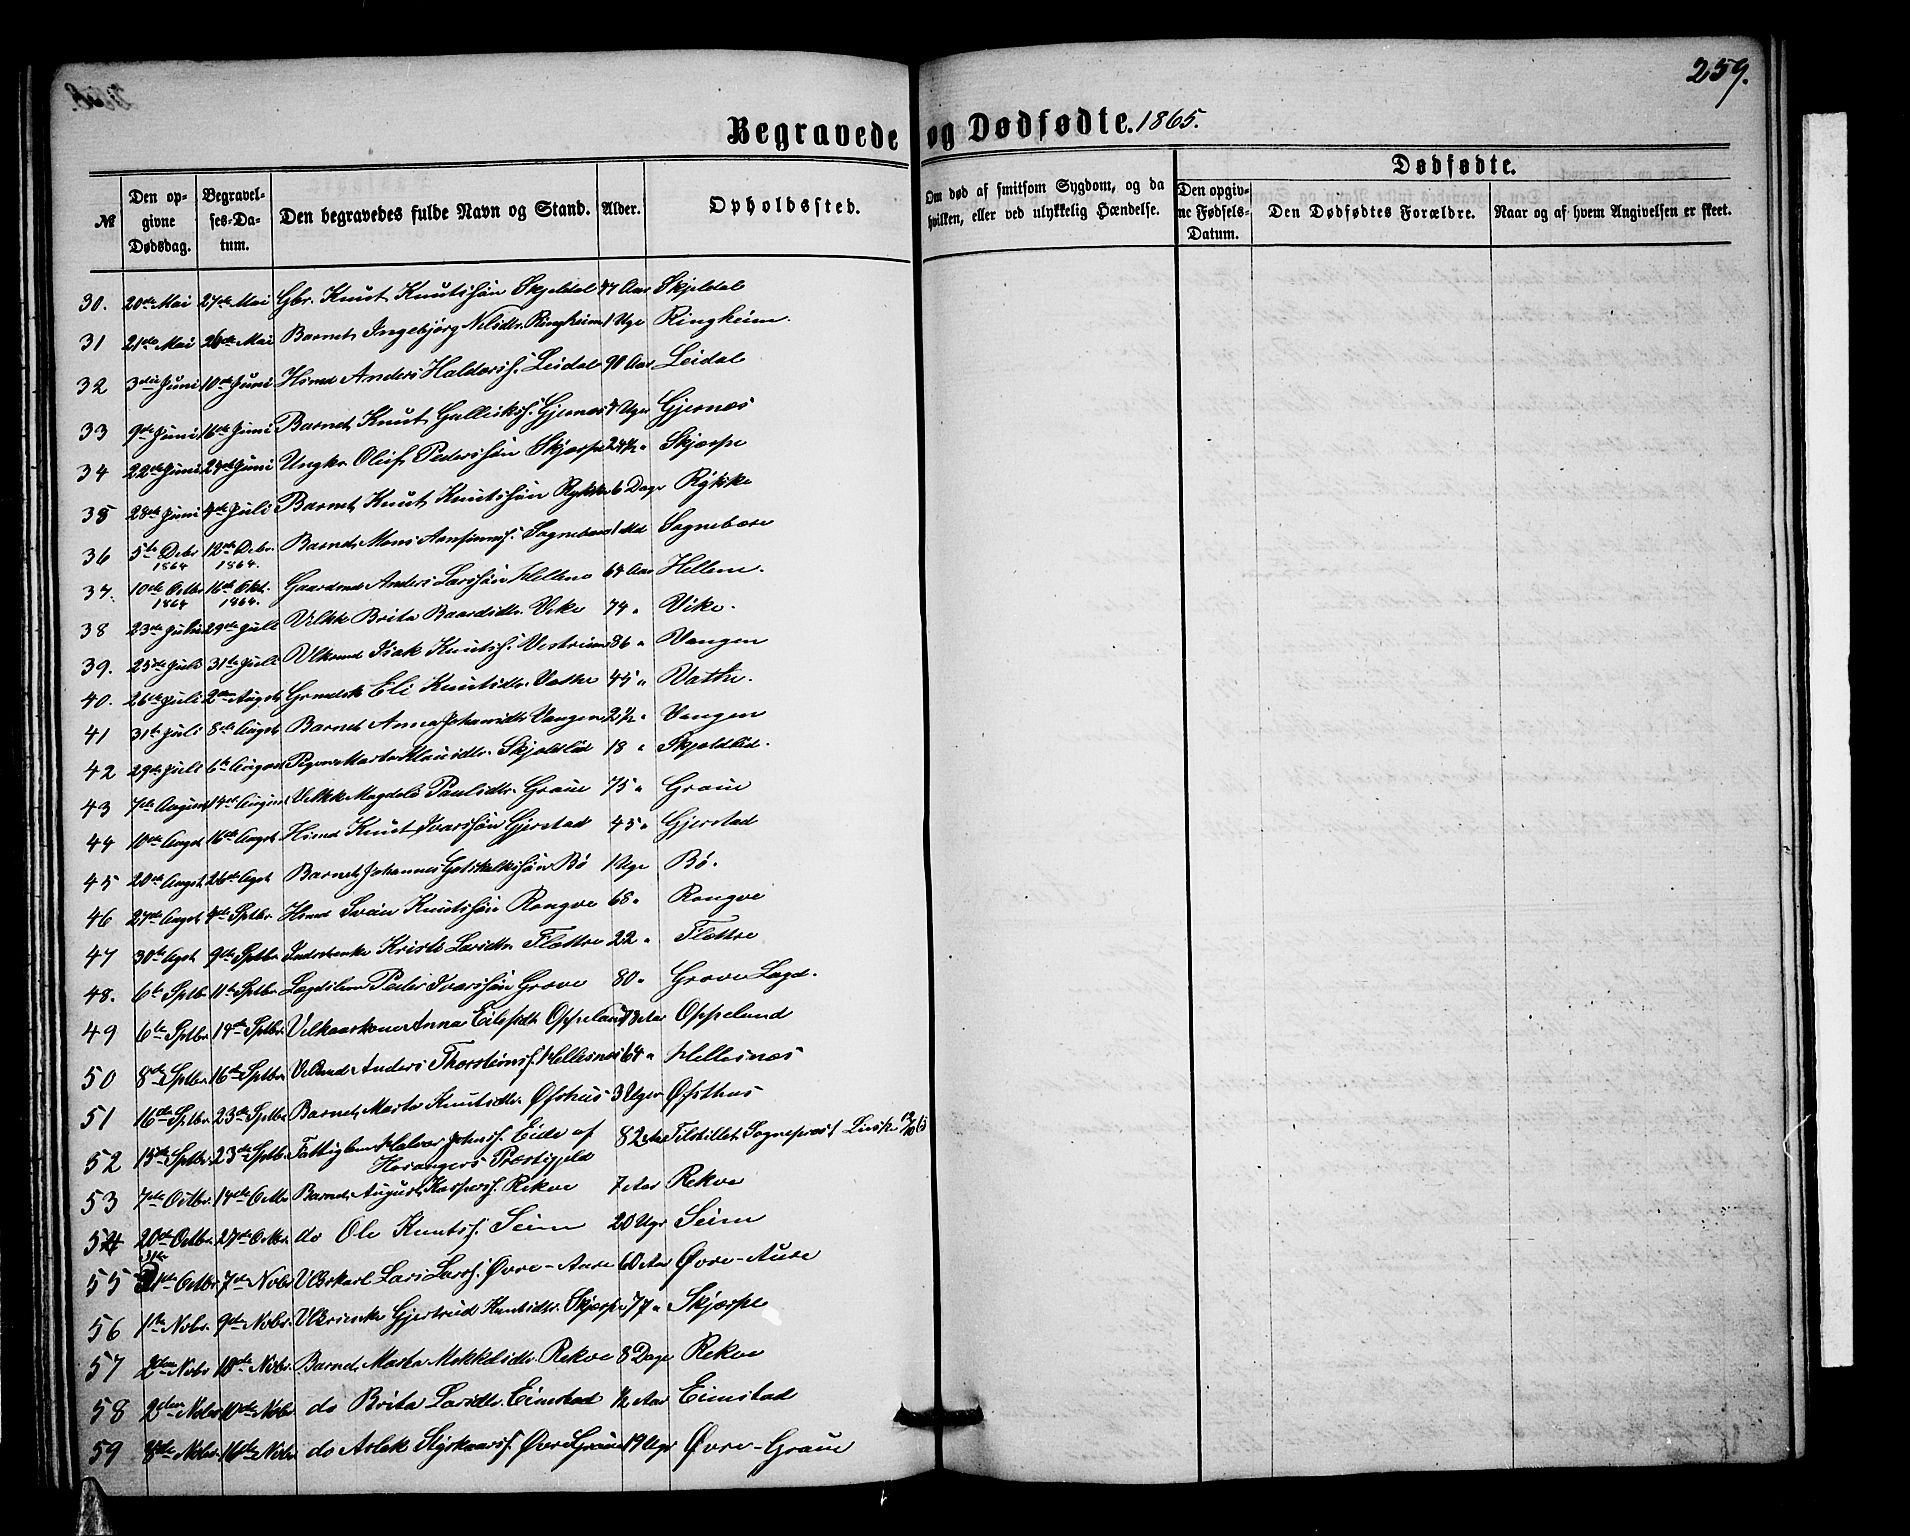 259.
Begravede og Dødfødte. 1865.
№ Den opgivne Dødsdag. Begravelses-Datum. Den begravedes fulde Navn og Stand. Alder. Opholdssted. Om død af smitsom Sygdom, og da hvilken, eller ved ulykkelig Hændelse. Dødfødte. Den opgivne Fødsels-Datum. Den Dødfødtes Forældre. Naar og af hvem Angivelsen er skeet.
30. 20de Mai 27de Mai Gbr. Knut Knutssøn Skjeldal 47 Aar Skjeldal
31 21de Mai 26de Mai Barnet Ingebjørg Nilsdtr. Ringheim 1 Uge Ringheim.
32 3die Juni 10de Juni Hsmd Anders Haldorss. Leidal 90 Aar Leidal
33 9de Juni 16de Juni Barnet Knut Gulleikss. Gjernæs 4 Uger Gjernæs
34 22de Juni 29de Juni Ungkr. Oleif Pederssøn Skjærpe 24½ " Skjærpe
35 28de Juni 4de Juli Barnet Knut Knutssøn Rykke 6 Dage Rykke
36 5te Debr 1864 12te Debr. 1864. Barnet Mons Aanfinnss. Sognebære 1 Md Sognebære
37. 10de Octbr 1864 16de Okt. 1864. Gaardmd Anders Larssøn Hellene 64 Aar Hellene.
38 23de Juli 29de Juli Vilkk Brita Baardsdtr. Vike 74 " Vike.
39. 25de Juli 31te Juli Vlkrmd Isak Knutss. Vestrum 36 " Vangen
40. 26de Juli 2den Augst Grmdsk Eli Knutsdtr. Vathe 45 " Vathe.
41 31te Juli 8de Augst Barnet Anna Johansdtr Vangen 2½ " Vangen
42 29de Juli 6te August Pigen Marta Klausdtr. Skjeldlid 18 " Skjeldlid.
43 7de August 14de August Vilkk Magdele Paulsdtr. Graue 75 " Graue
44 10de Augst 16de Augst Hsmd Knut Ivarssøn Gjerstad 45 " Gjerstad
45 20de Augst 26de Agst Barnet Johannes Godskalkssøn Bø 1 Uge Bø.
46 27de Augst 4de Sptbr. Hsmd Svein Knutssøn Rongve 68 " Rongve
47 30te Agst 9de Sptbr Inderstenke Kristi Larsdtr. Flettre 22 " Flettre
48. 6te Sptbr 11te Sptbr Lægdslem Peder Ivarssøn Grove 80 " Grove Lægd.
49 6te Sptbr 14de Sptbr. Vilkaarskone Anna Eilefsdtr Oppeland 73 Aar Oppelund
50 8de Sptbr. 16de Sptbr Vilkmd Anders Thorsteinss. Hellesnæs 64 " Hellesnæs
51 16de Sptbr 23de Sptbr Barnet Marta Knutsdtr. Øfsthus 3 Uger Øfsthus
52 15de Sptbr. 23de Sptbr Fattiglem Halvor Johnss. Eide af Hosangers Præstegjeld 82 Aar Tilstillet Sogneprest
53 7de Octbr. 14de Octbr Barnet August Kaspers. Rekve 7 Aar Rekve
54 20de Octbr. 27de Octbr. do Ole Knutss. Seim 20 Ugr Seim
55 31te Octbr. 7de Nobr. Vlkrkarl Lars Larss. Øvre-Aure 60 Aar Øvre-Aure
56 1te Nobr. 9de Nobr. Vlkrienke Gjertrud Knutsdtr. Skjærpe 77 " Skjærpe
57 2den Nobr 10de Nobr. Barnet Marta Mikkelsdtr. Rekve 8 Dage Rekve
58 2den Nobr 10de Nobr do Brita Larsdtr. Eimstad ½ Aar Eimstad
59 8de Nobr. 16de Nobr do Aslak Styrkaarss. Øvre Graue 19 Ugr Øvre-Graue